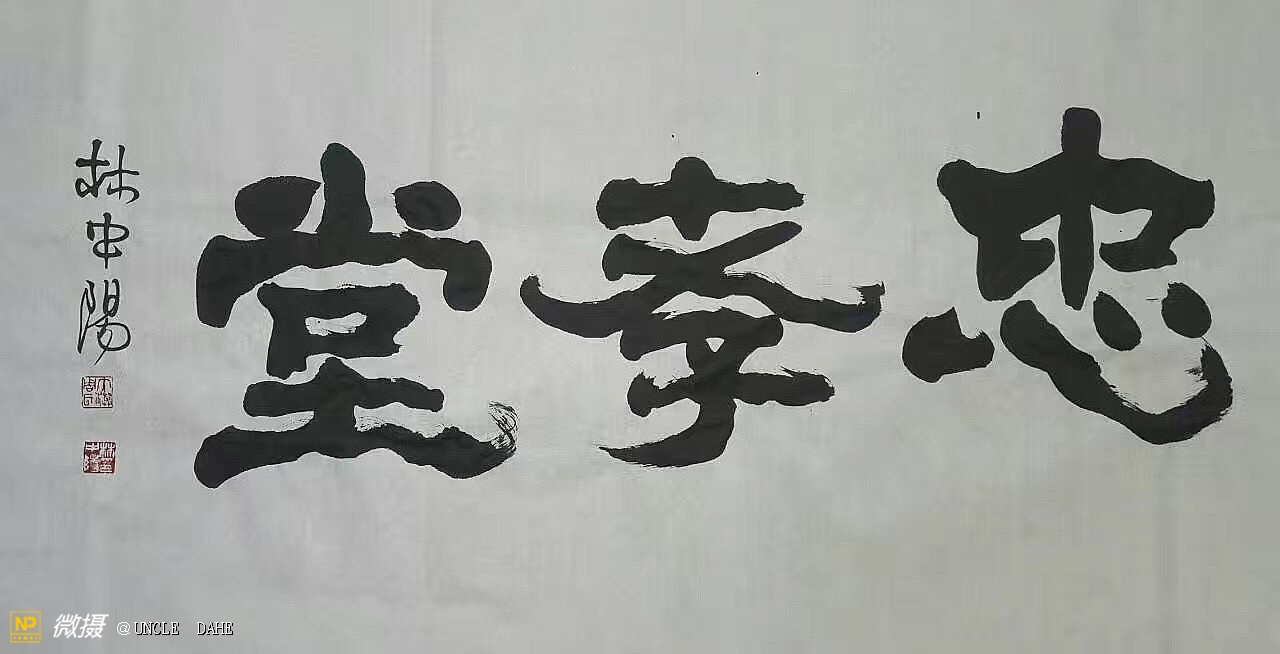 忠孝堂
林中陽
NP 微摄 @UNCLE DAHE